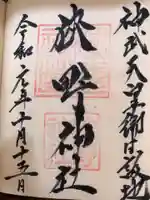 神武天皇御降誕地
狭野神社
令和元年十月十
日